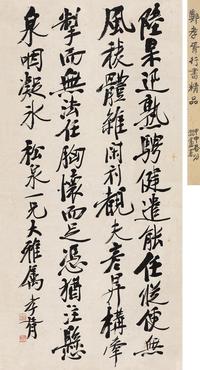 鄭孝胥行書精品
陸杲迅熟騁健遣能任從便無
風稜體雖閑利觀夫彥昇構牽
掣而無法任胸懷而足憑猶注懸
泉咽凝冰 松泉一兄大雅屬 孝胥